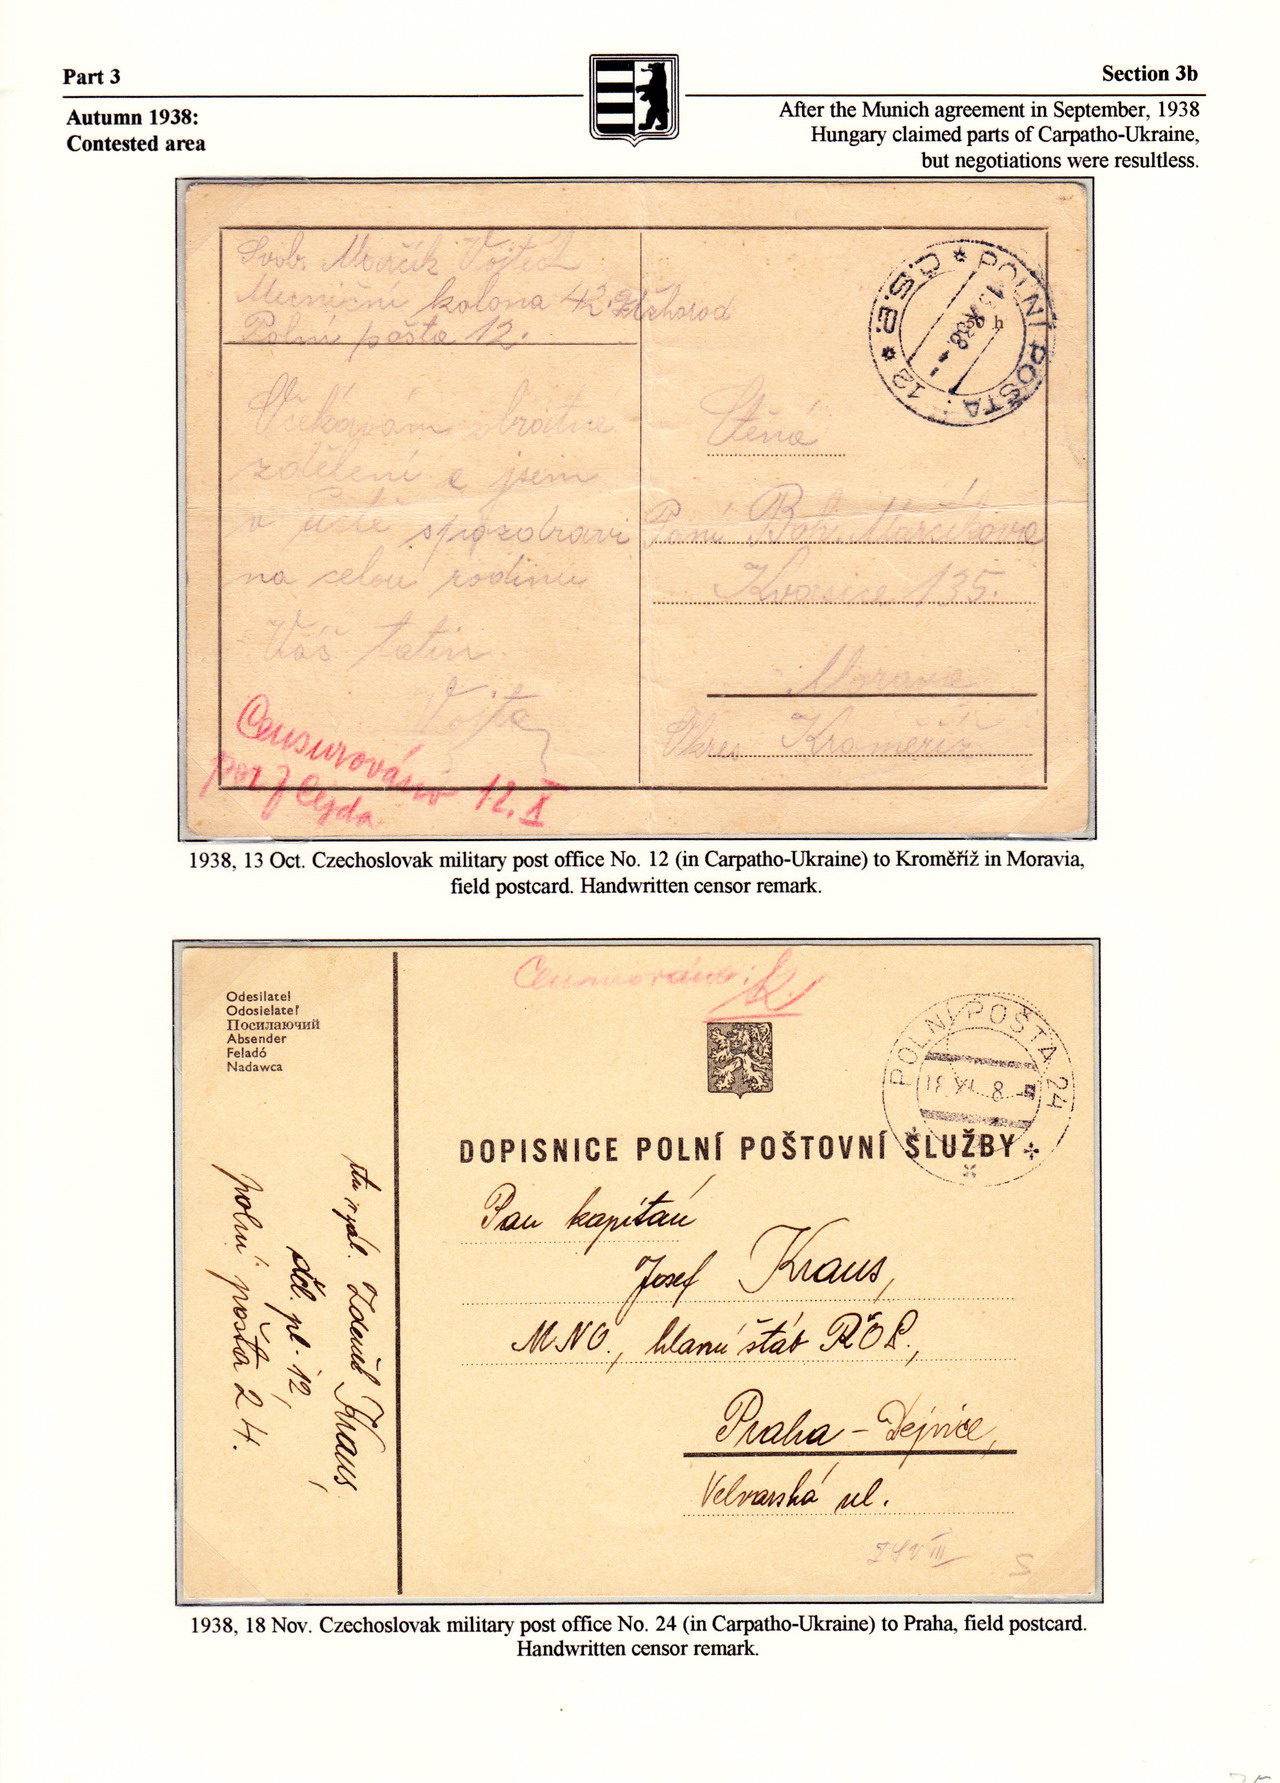 Part 3
Section 3b
Autumn 1938:
Contested area
After the Munich agreement in September, 1938
Hungary claimed parts of Carpatho-Ukraine,
but negotiations were resultless.
Svob. Marčík Vojtěch
Muniční kolona 42. Užhorod
Polní pošta 12.
Č.S.P. * POLNÍ POŠTA 12 *
13 X 38
Očekávám obratné
zdělení a jsem
v úctě s pozdravi
na celou rodinu
Váš tatín.
Vojta
Ctěná
Paní Boh. Marčíková
Kvasice 135.
Morava
Okres Kroměříž
Censurováno 12. X
por Cejda
1938, 13 Oct. Czechoslovak military post office No. 12 (in Carpatho-Ukraine) to Kroměříž in Moravia,
field postcard. Handwritten censor remark.
Odesílatel
Odosielateľ
Посилаючий
Absender
Feladó
Nadawca
Censurováno: K.
POLNÍ POŠTA 24
18. XI. 8
DOPISNICE POLNÍ POŠTOVNÍ SLUŽBY
Pan kapitán
Josef Kraus,
MNO., hlavní štáb ŘOP.,
Praha - Dejvice,
Velvarská ul.
Zdeněk Kraus,
děl. pl. 12,
polní pošta 24.
1938, 18 Nov. Czechoslovak military post office No. 24 (in Carpatho-Ukraine) to Praha, field postcard.
Handwritten censor remark.